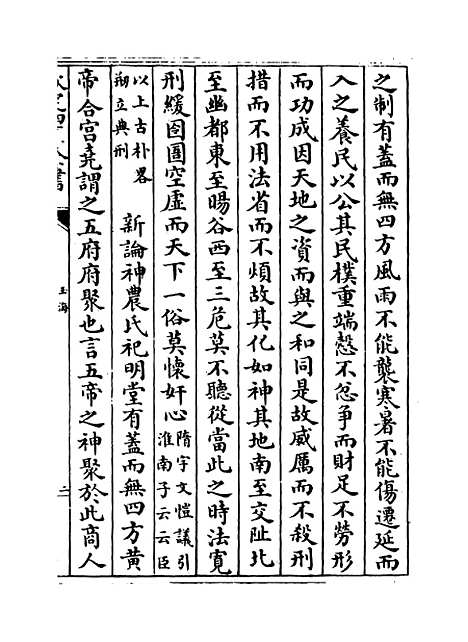 之制有蓋而無四方風雨不能襲寒暑不能傷遷延而
入之養民以公其民樸重端慤不忿争而財足不勞形
而功成因天地之資而與之和同是故威厲而不殺刑
措而不用法省而不煩故其化如神其地南至交阯北
至幽都東至暘谷西至三危莫不聽從當此之時法寛
刑緩囹圄空虚而天下一俗莫懷奸心隋宇文愷議引
淮南子云云臣
以上古朴畧
剏立典刑
新論神農氏祀明堂有蓋而無四方黄
帝合宫堯謂之五府府聚也言五帝之神聚於此商人
玉海
二